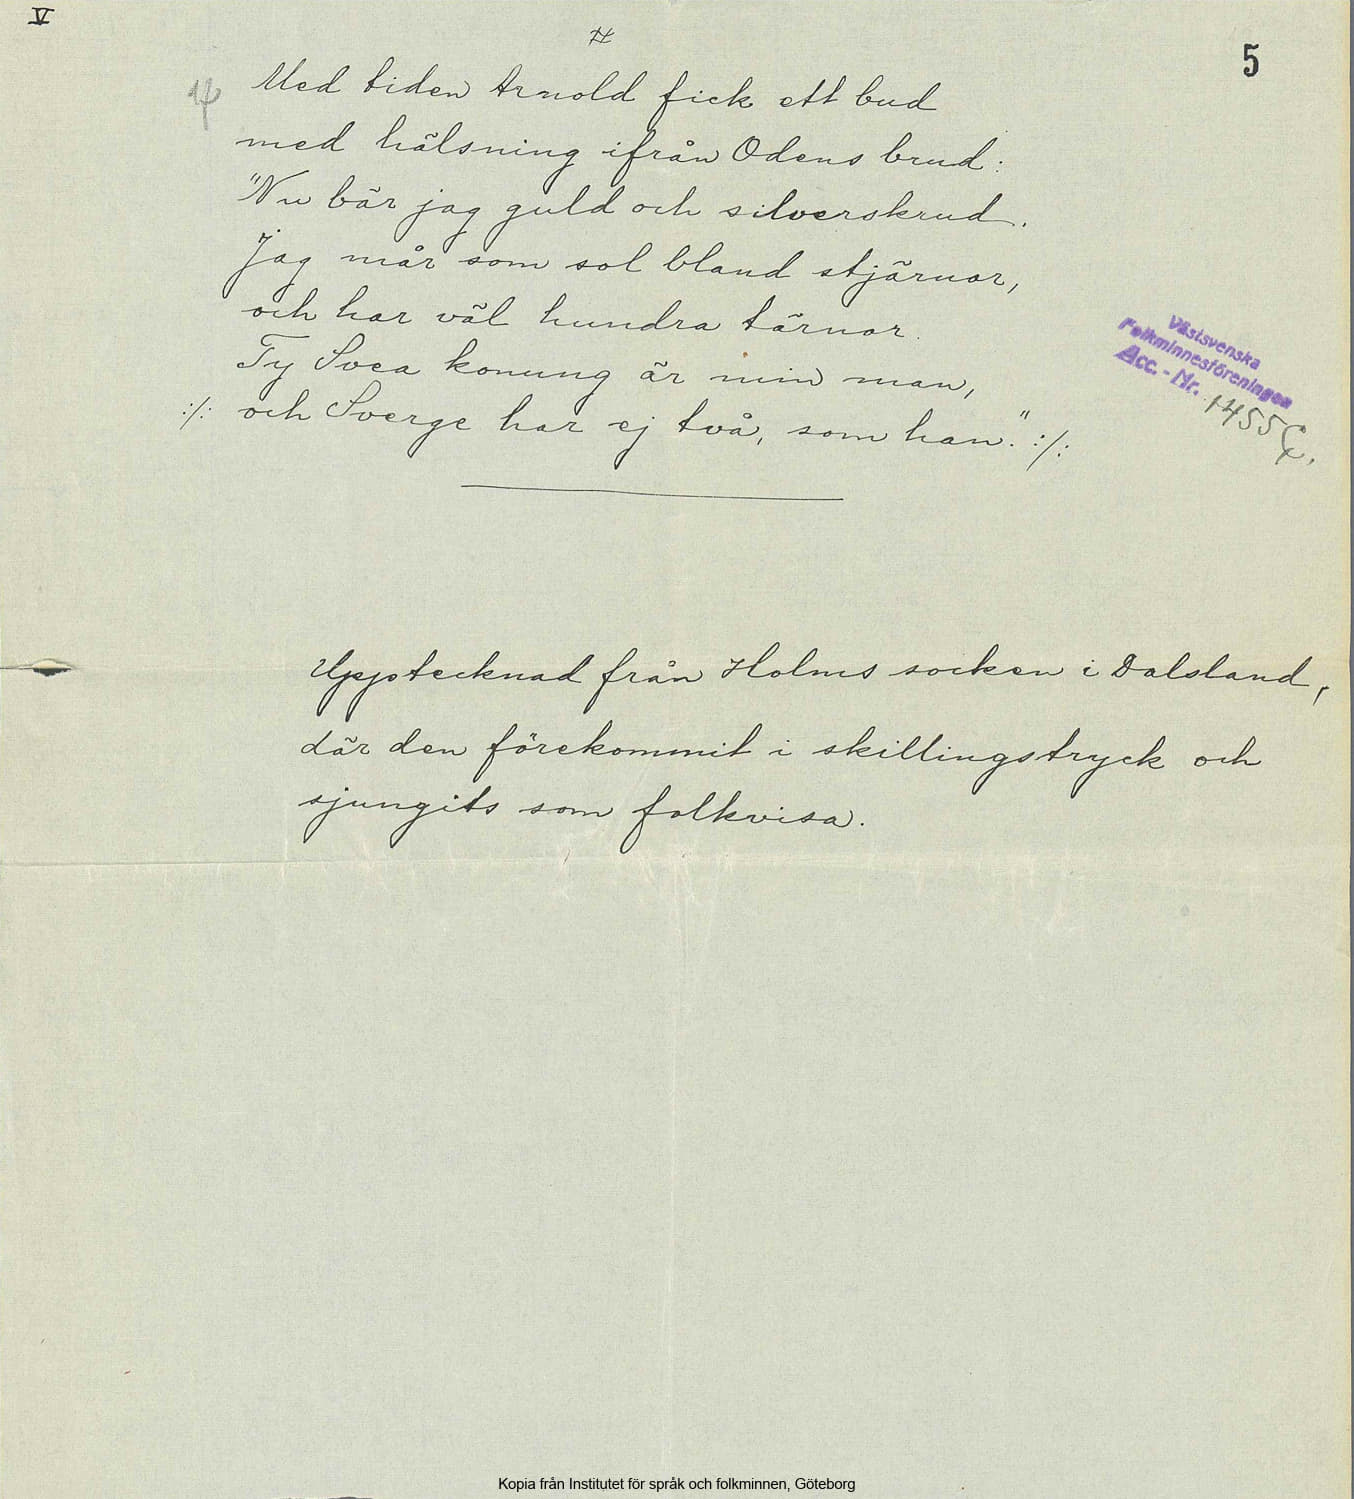 V
#
5
14 Med tiden Arnold fick ett bud
med hälsning ifrån Odens brud:
"Nu bär jag guld och silverskrud.
Jag mår som sol bland stjärnor,
och har väl hundra tärnor.
Ty Svea konung är min man,
:/: och Sverge har ej två, som han." :/:
Västsvenska
Folkminnesföreningen
Acc.-Nr. 1455
Upptecknad från Holms socken i Dalsland,
där den förekommit i skillingstryck och
sjungits som folkvisa.
Kopia från Institutet för språk och folkminnen, Göteborg